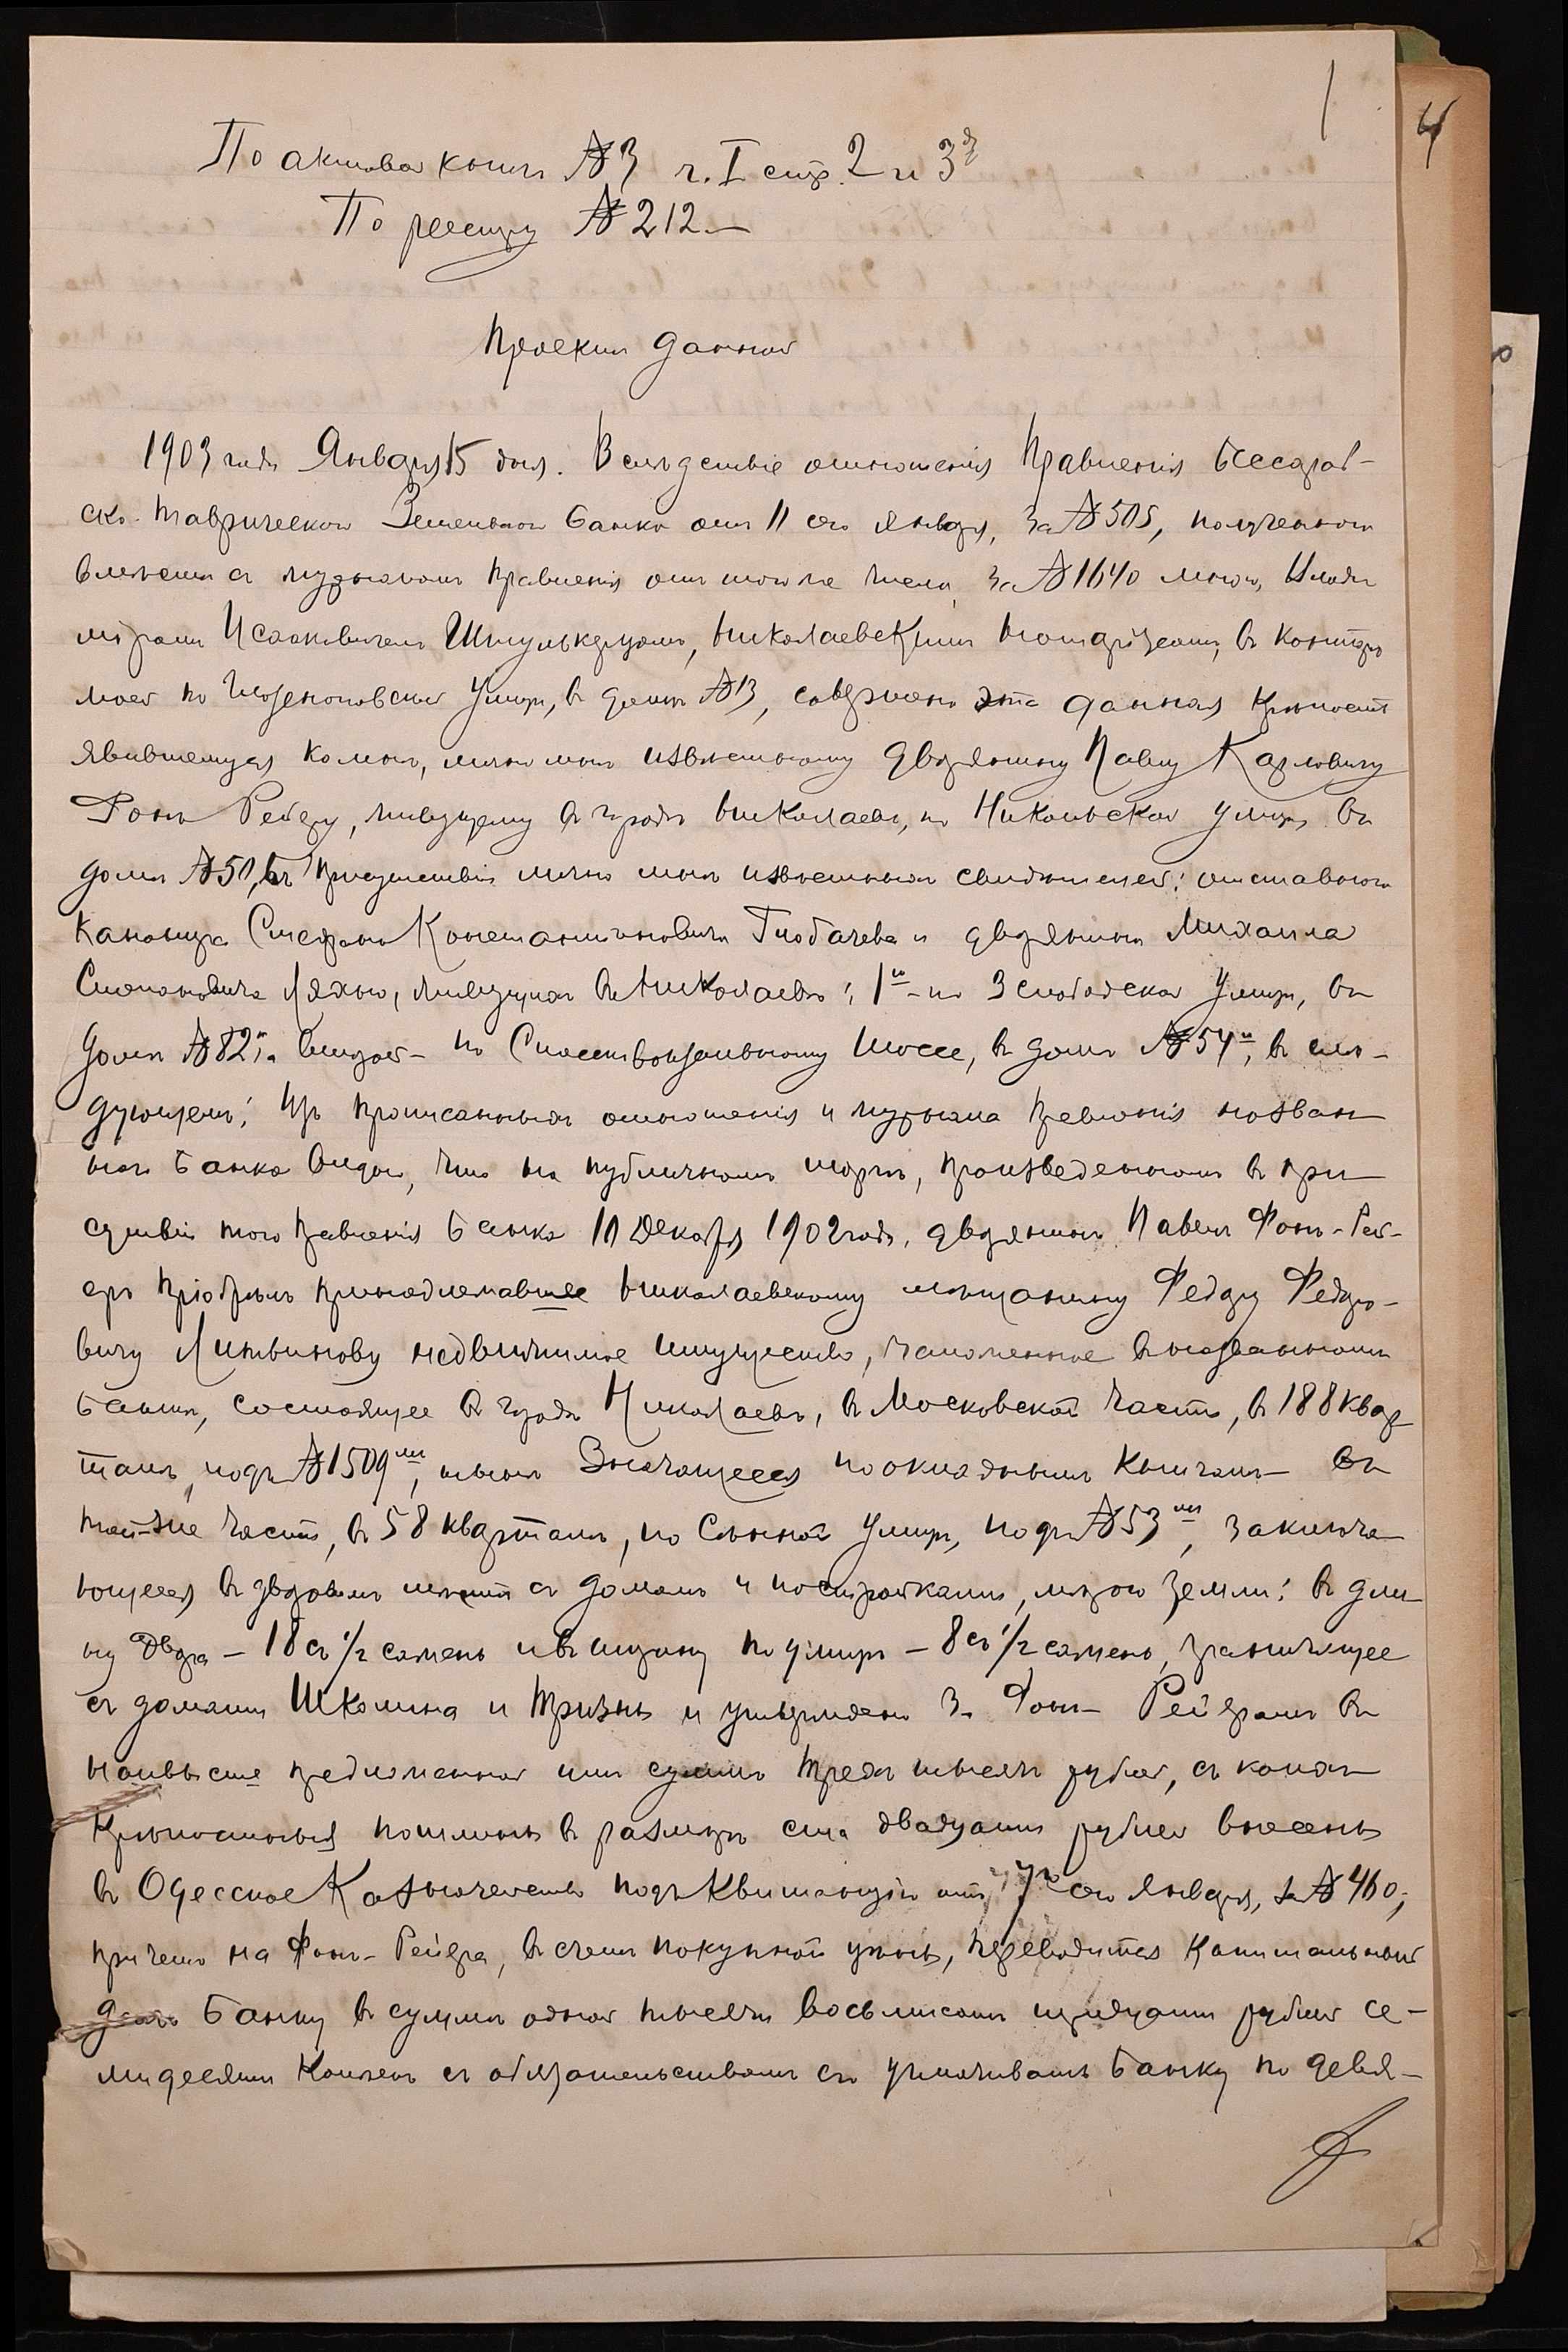 1
4
По актовой книгѣ №3 ч. I стр. 2 и 3
По реестру № 212.—
Проектъ данной
1903 года Января 15 дня. Вслѣдствіе отношенія Правленія Бессараб-
ско-Таврическаго Земельнаго Банка отъ 11 сего Января, за №505, полученнаго
вмѣстѣ съ журналомъ Правленія отъ того же числа, за №1640 мною,
Исааковичемъ Николаевскимъ Нотаріусомъ, въ конторѣ
моей по улицѣ, въ домѣ №13, совершена эта данная крѣпость
явившемуся ко мнѣ, лично мнѣ извѣстному дворянину Павлу Карловичу
Фонъ Рейеру, живущему въ городѣ Николаевѣ, по Никольской улицѣ въ
домѣ №50, въ присутствіи лично мнѣ извѣстныхъ свидѣтелей: отставного
Стефана Константиновича и дворянина Михаила
Степановича живущихъ въ Николаевѣ: 1й - по 3 Слободской улицѣ, въ
домѣ №82й, а второй - по шоссе, въ домѣ №54й, въ слѣ-
дующемъ: Изъ прописанныхъ отношенія и журнала Правленія названн
наго Банка видно, что на публичномъ торгѣ, произведенномъ въ при-
сутствіи того Правленія Банка 10 Декабря 1902 года, дворянинъ Павелъ Фонъ-Рей-
еръ пріобрѣлъ принадлежавшее Николаевскому мѣщанину Федору Федоро-
вичу Литвинову недвижимое имущество, заложенное въ названномъ
Банкѣ, состоящее въ городѣ Николаевѣ, въ Московской части, въ 188 квар
талѣ, подъ №1509мъ, нынѣ значащееся по окладнымъ книгамъ - въ
той-же части, въ 58 кварталѣ, по Сѣнной улицѣ, подъ №53мъ, заключа-
ющееся въ дворовомъ мѣстѣ съ домомъ и постройками, мѣрою земли: въ дли-
ну двора - 18 съ 1/2 сажень и въ ширину по улицѣ - 8 съ 1/2 сажень, граничащее
съ домами Школина и Тризны и утверждено за Фонъ-Рейеромъ въ
наивысше предложенной имъ суммѣ трехъ тысячъ рублей, съ коихъ
крѣпостныя пошлины въ размѣрѣ ста двадцати рублей внесены
въ Одесское Казначейство подъ квитанцію отъ 7го сего Января, за № 460;
причемъ на Фонъ-Рейера, въ счетъ покупной цѣны, переводится капитальный
долгъ Банку въ суммѣ одной тысячи восьмисотъ тридцати рублей се-
мидесяти копѣекъ съ обязательствомъ его уплачивать Банку по девя-